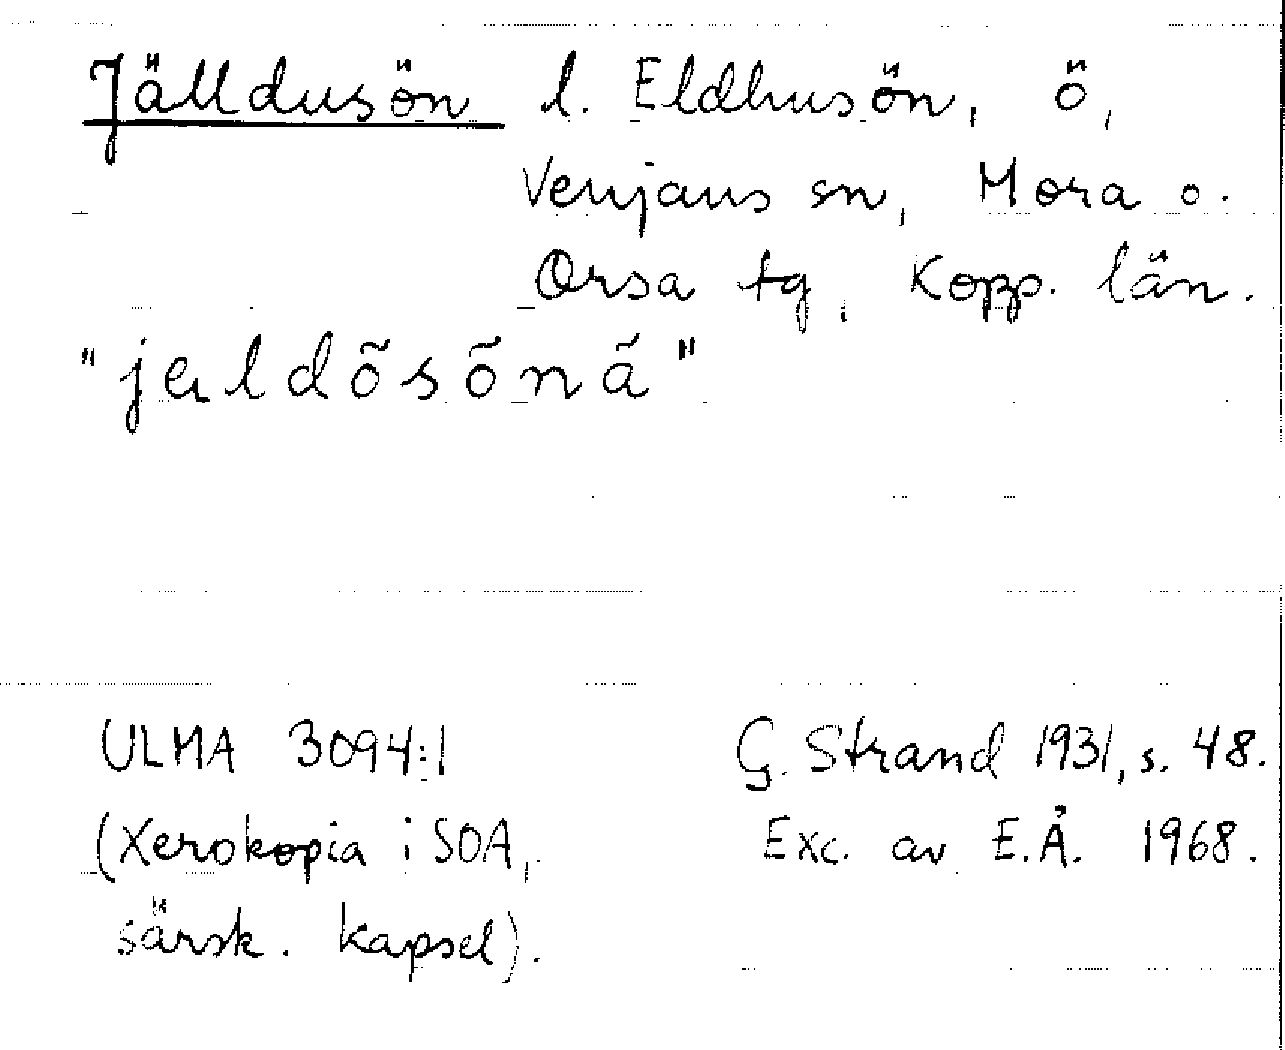 Jälldusön l. Eldhusön, ö,
Venjans sn, Mora o.
Orsa tg, Kopp. län.
"jaldõsõnã"
ULMA 3094:1 G. Strand 1931, s. 48.
(Xerokopia i SOA, Exc. av E.Å. 1968.
särsk. kapsel).